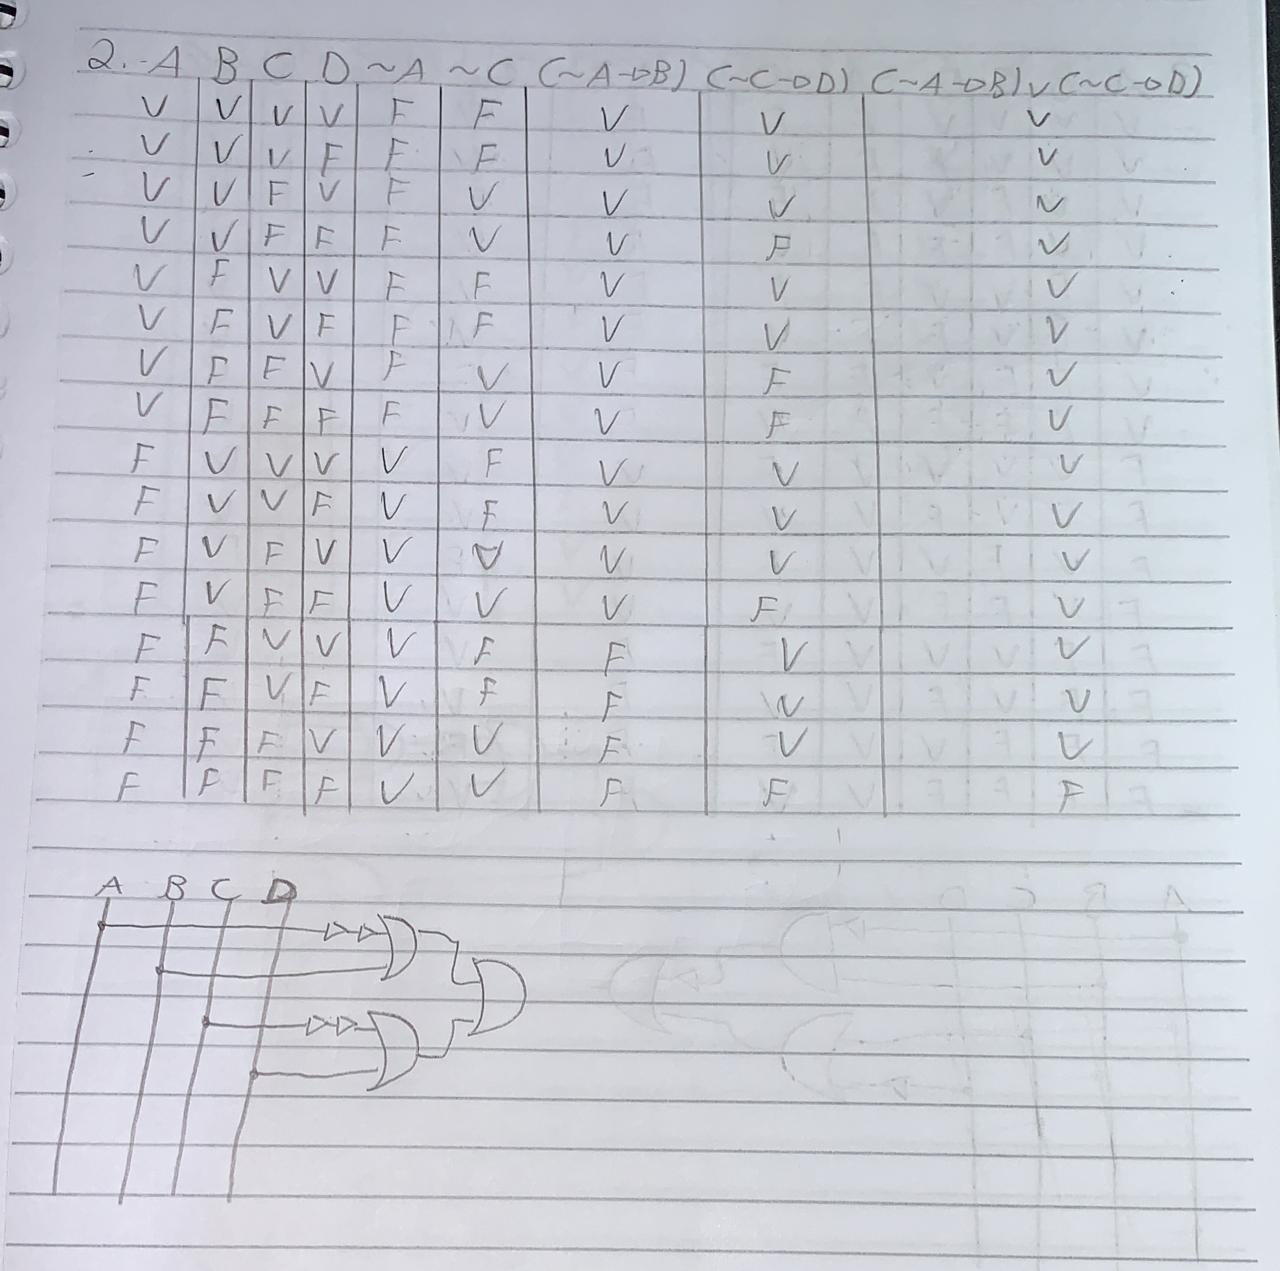 2.- A B C D ~A ~C (~A→B) (~C→D) (~A→B) v (~C→D)
V V V V F F V V V
V V V F F F V V V
V V F V F V V V V
V V F F F V V F V
V F V V F F V V V
V F V F F F V V V
V F F V F V V F V
V F F F F V V F V
F V V V V F V V V
F V V F V F V V V
F V F V V V V V V
F V F F V V V F V
F F V V V F F V V
F F V F V F F V V
F F F V V V F V V
F F F F V V F F F
A B C D